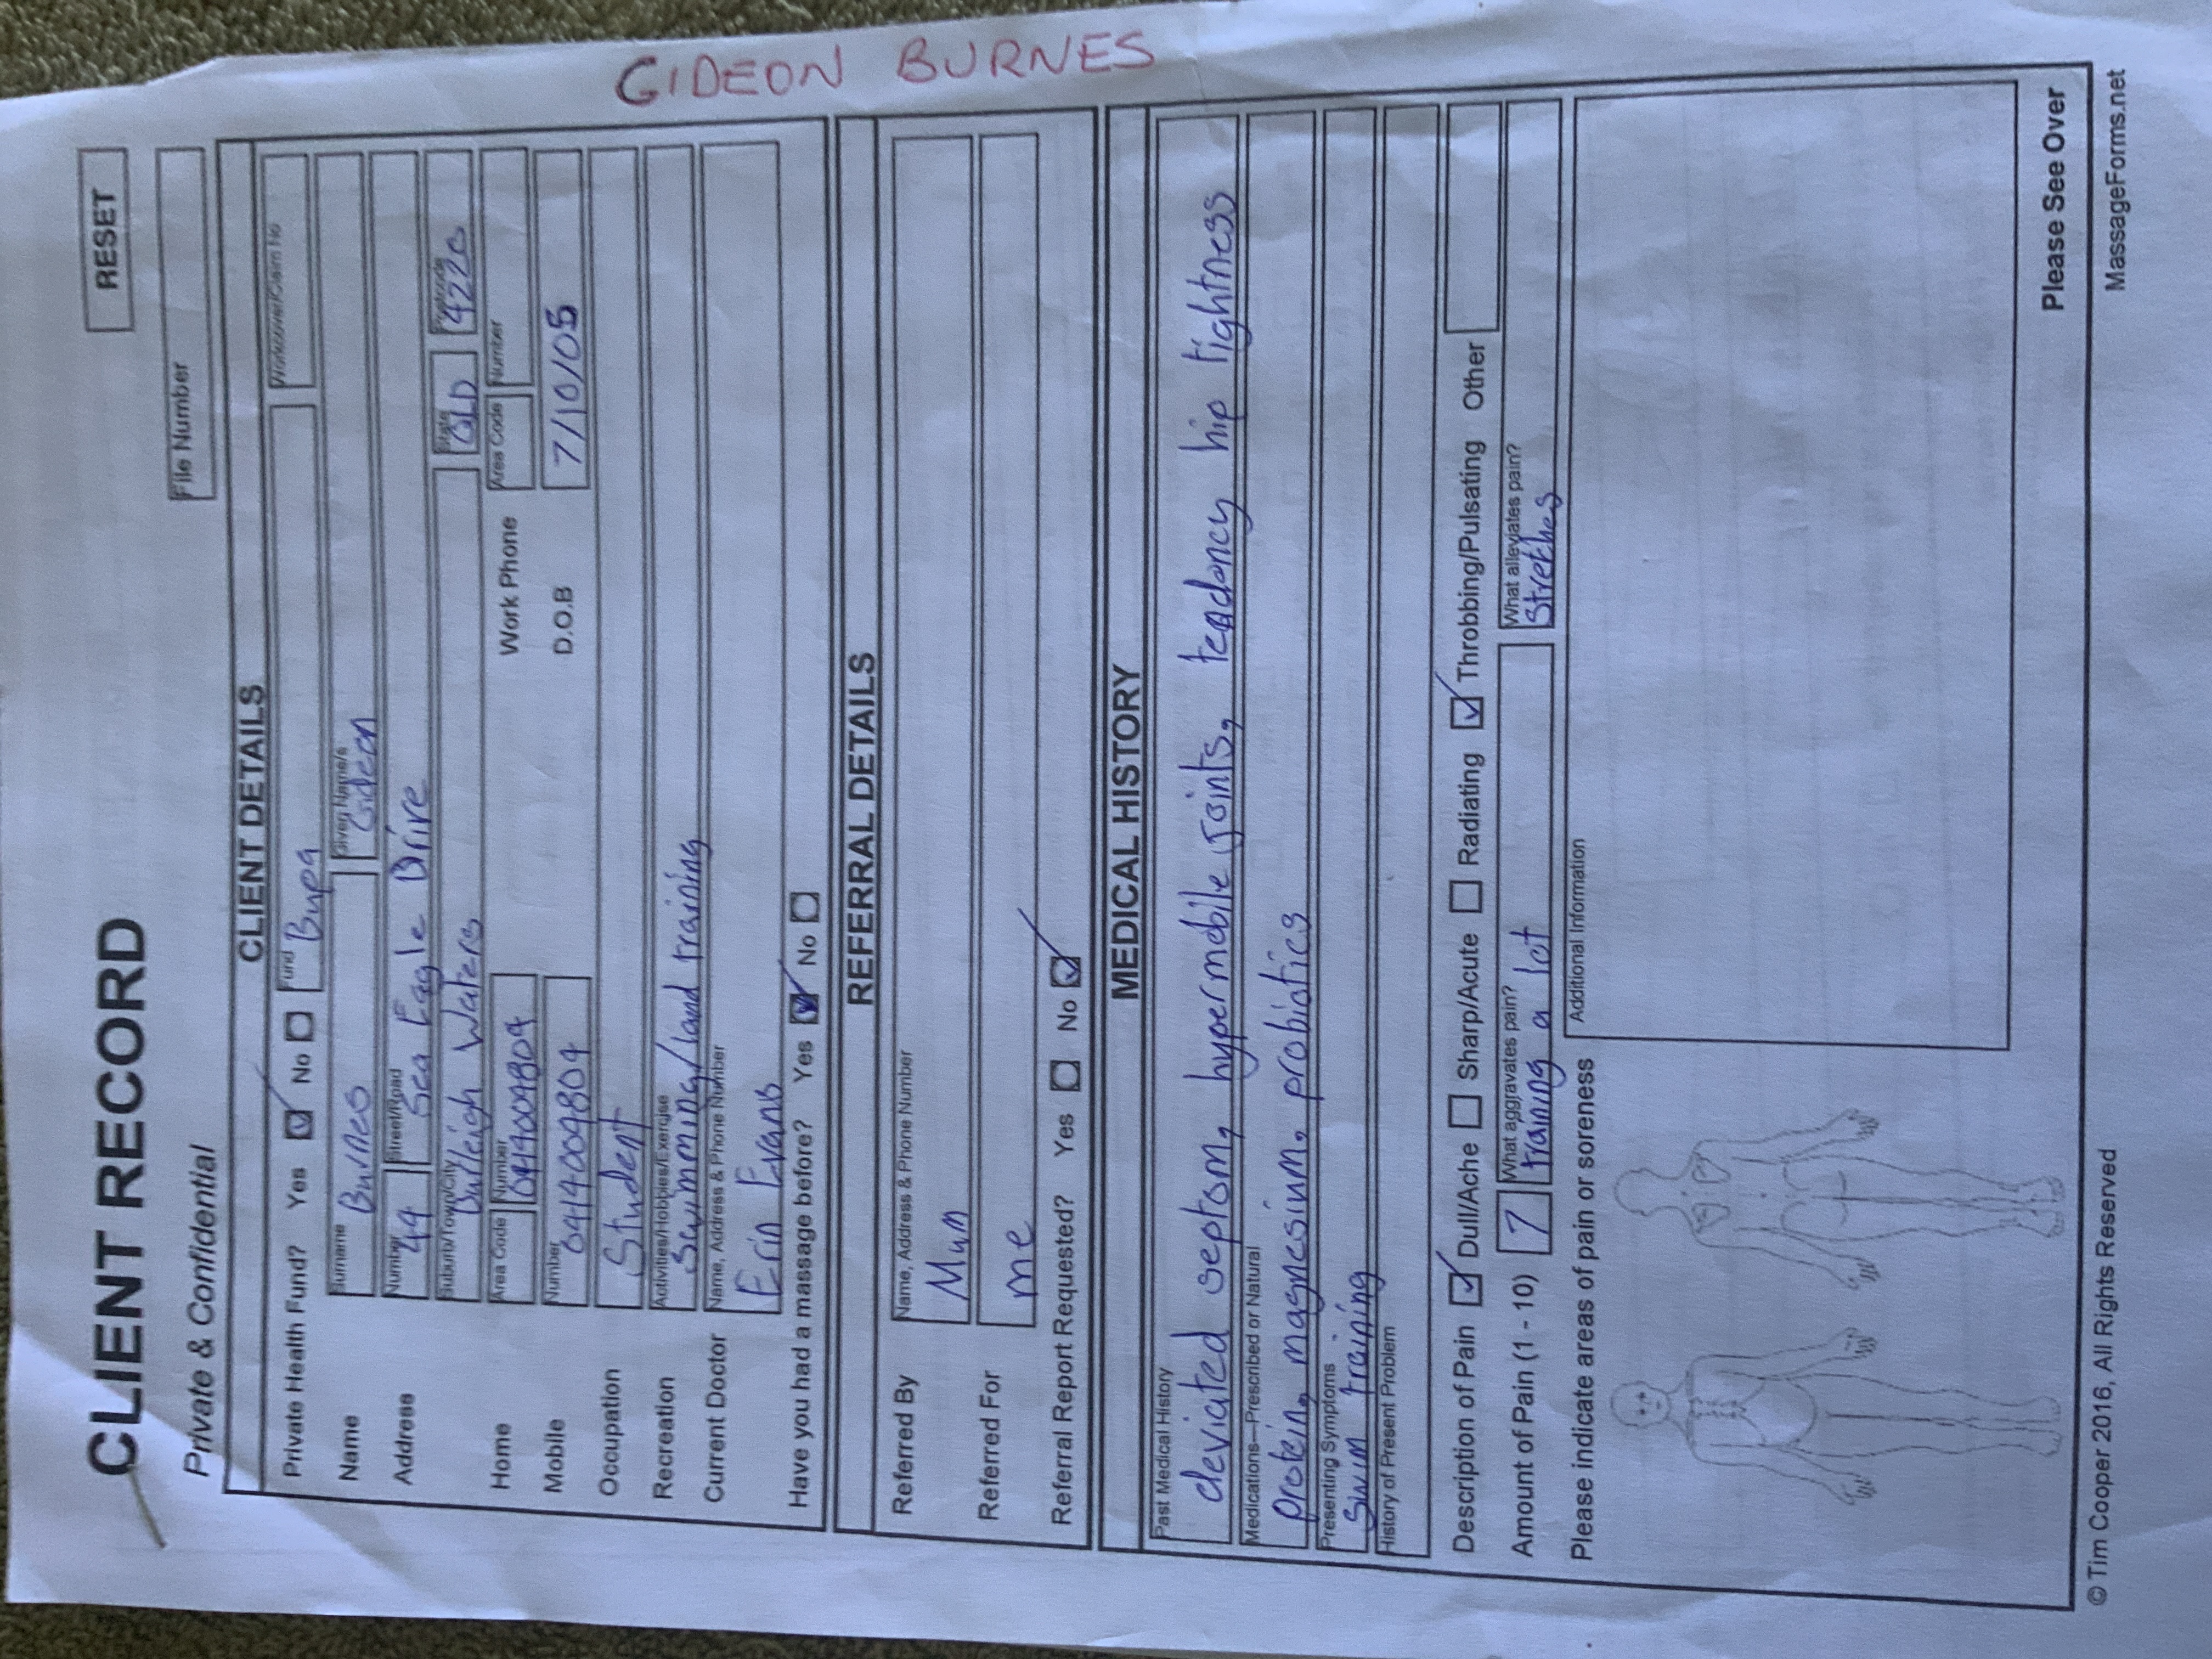 GIDEON BURNES
CLIENT RECORD
RESET
Private & Confidential
File Number
CLIENT DETAILS
Private Health Fund? Yes No Fund Bupa
Name Surname Burnes Given Name/s Gideon
Address Number 44 Street/Road Sea Eagle Drive
Suburb/Town/City Burleigh Waters State QLD Postcode 4220
Home Area Code Number Work Phone Area Code Number
Mobile Number D.O.B 7/10/05
Occupation Student
Recreation Activities/Hobbies/Exercise swimming/land training
Current Doctor Name, Address & Phone Number Erin Evans
Have you had a massage before? Yes No
REFERRAL DETAILS
Referred By Name, Address & Phone Number Mum
Referred For me
Referral Report Requested? Yes No
MEDICAL HISTORY
Past Medical History
deviated septom, hypermobile joints, tendancy hip tightness
Medications—Prescribed or Natural
protein, magnesium, probiotics
Presenting Symptoms
Swim training
History of Present Problem
Description of Pain Dull/Ache Sharp/Acute Radiating Throbbing/Pulsating Other
Amount of Pain (1 - 10) 7 What aggravates pain? training a lot What alleviates pain? Stretches
Please indicate areas of pain or soreness
Additional Information
Please See Over
© Tim Cooper 2016, All Rights Reserved
MassageForms.net